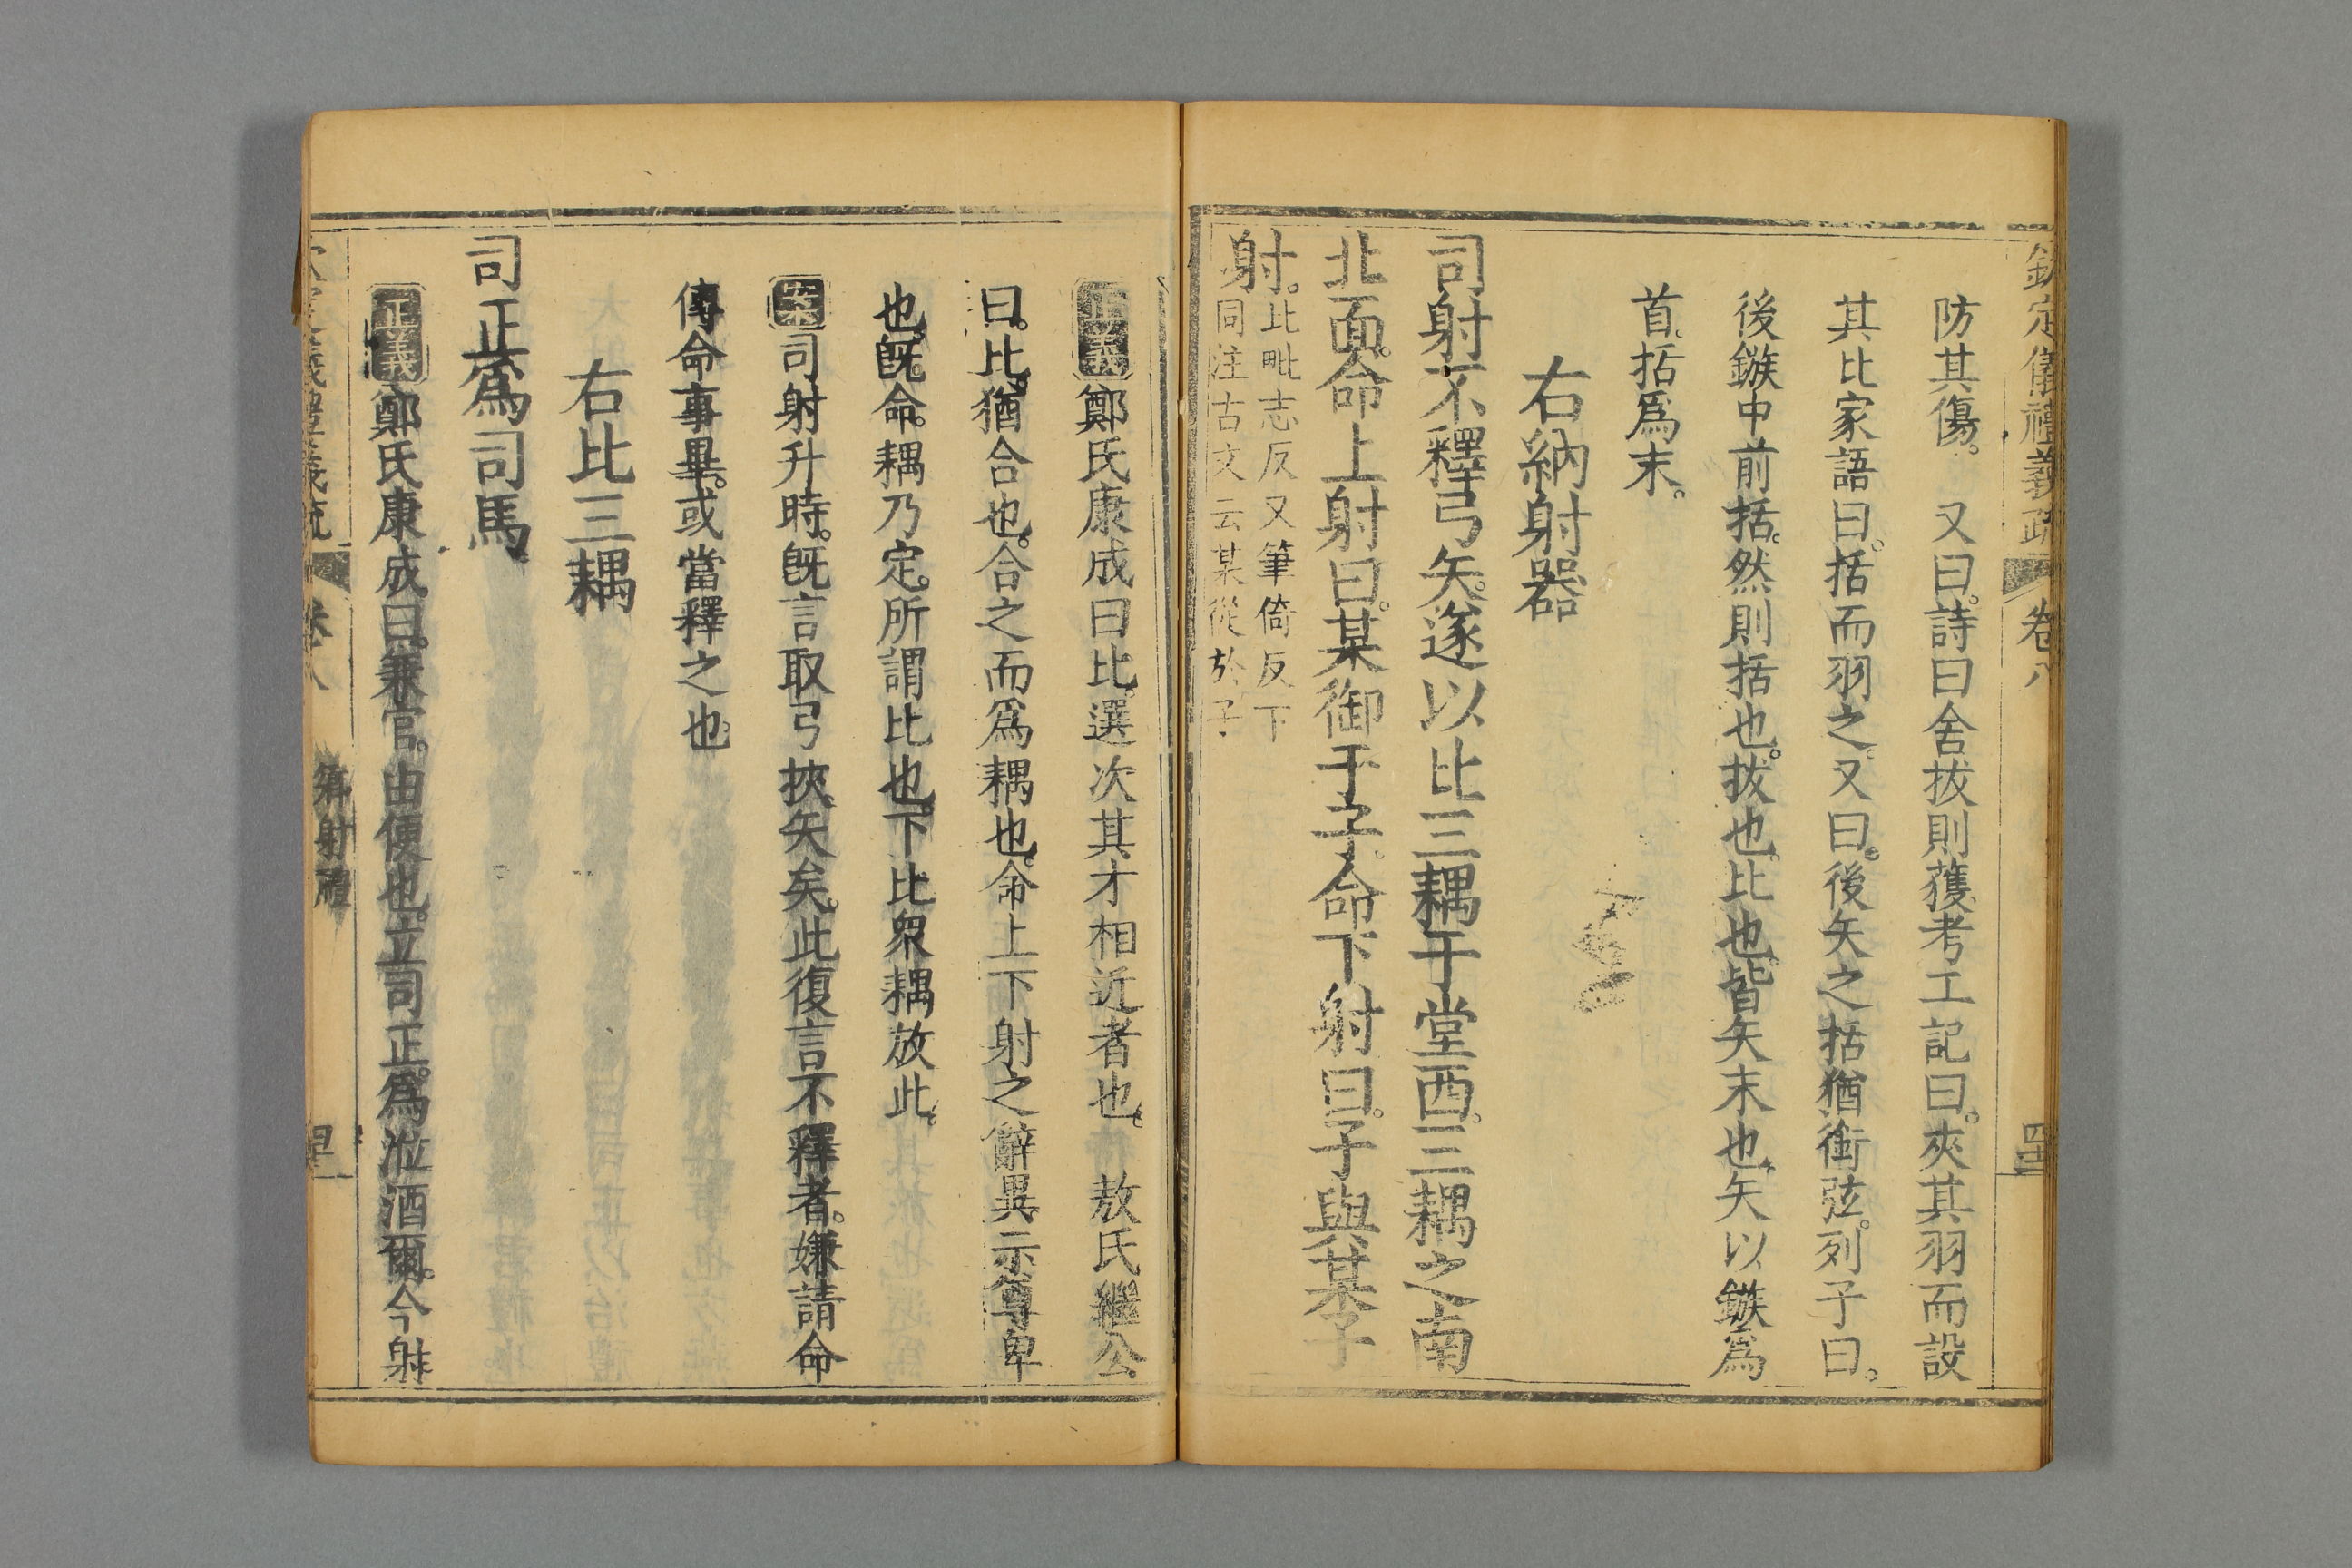 欽定儀禮義疏 卷八
防其傷。 又曰。詩曰舍拔則獲考工記曰。夾其羽而設
其比家語曰。括而羽之。又曰。後矢之括猶銜弦。列子曰。
後鏃中前括。然則括也。拔也。比也。皆矢末也。矢以鏃爲
首。括爲末。
右納射器
司射不釋弓矢。遂以比三耦于堂西。三耦之南
北面。命上射曰。某御于子。命下射曰。子與某子
射。比毗志反又筆倚反下
同注古文云某從於子
正義鄭氏康成曰比。選次其才相近者也。 敖氏繼公
曰。比。猶合也。合之而爲耦也。命上下射之辭異示尊卑
也。旣命。耦乃定。所謂比也。下比衆耦放此。
案司射升時。旣言取弓挾矢矣。此復言不釋者。嫌請命
傳命事畢。或當釋之也
右比三耦
司正爲司馬
正義鄭氏康成曰。兼官。由便也。立司正。爲涖酒爾。今射
儀禮義疏 卷八 射禮